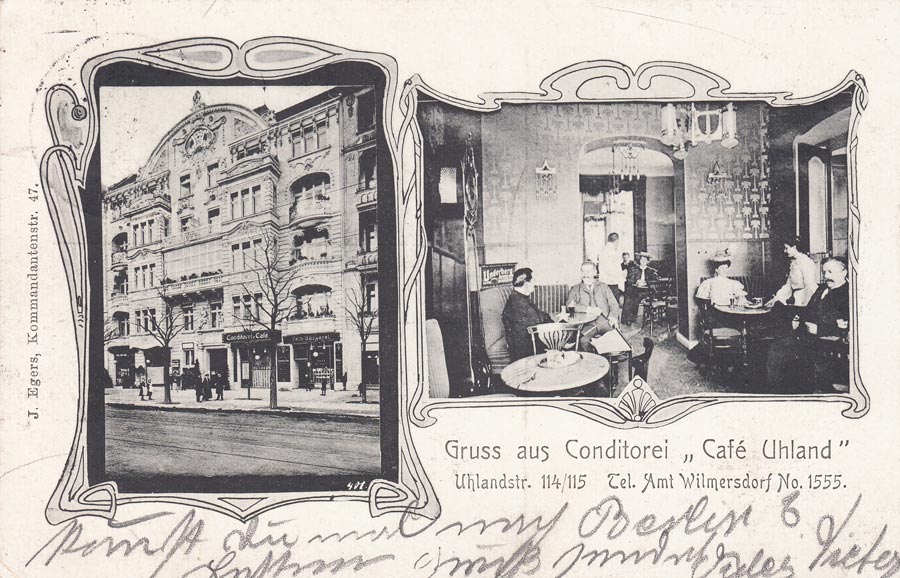 J. Egers, Kommandantenstr. 47.
Conditorei & Café
Underberg
401.
Gruss aus Conditorei „Café Uhland”
Uhlandstr. 114/115 Tel. Amt Wilmersdorf No. 1555.
kommst du mal nach Berlin